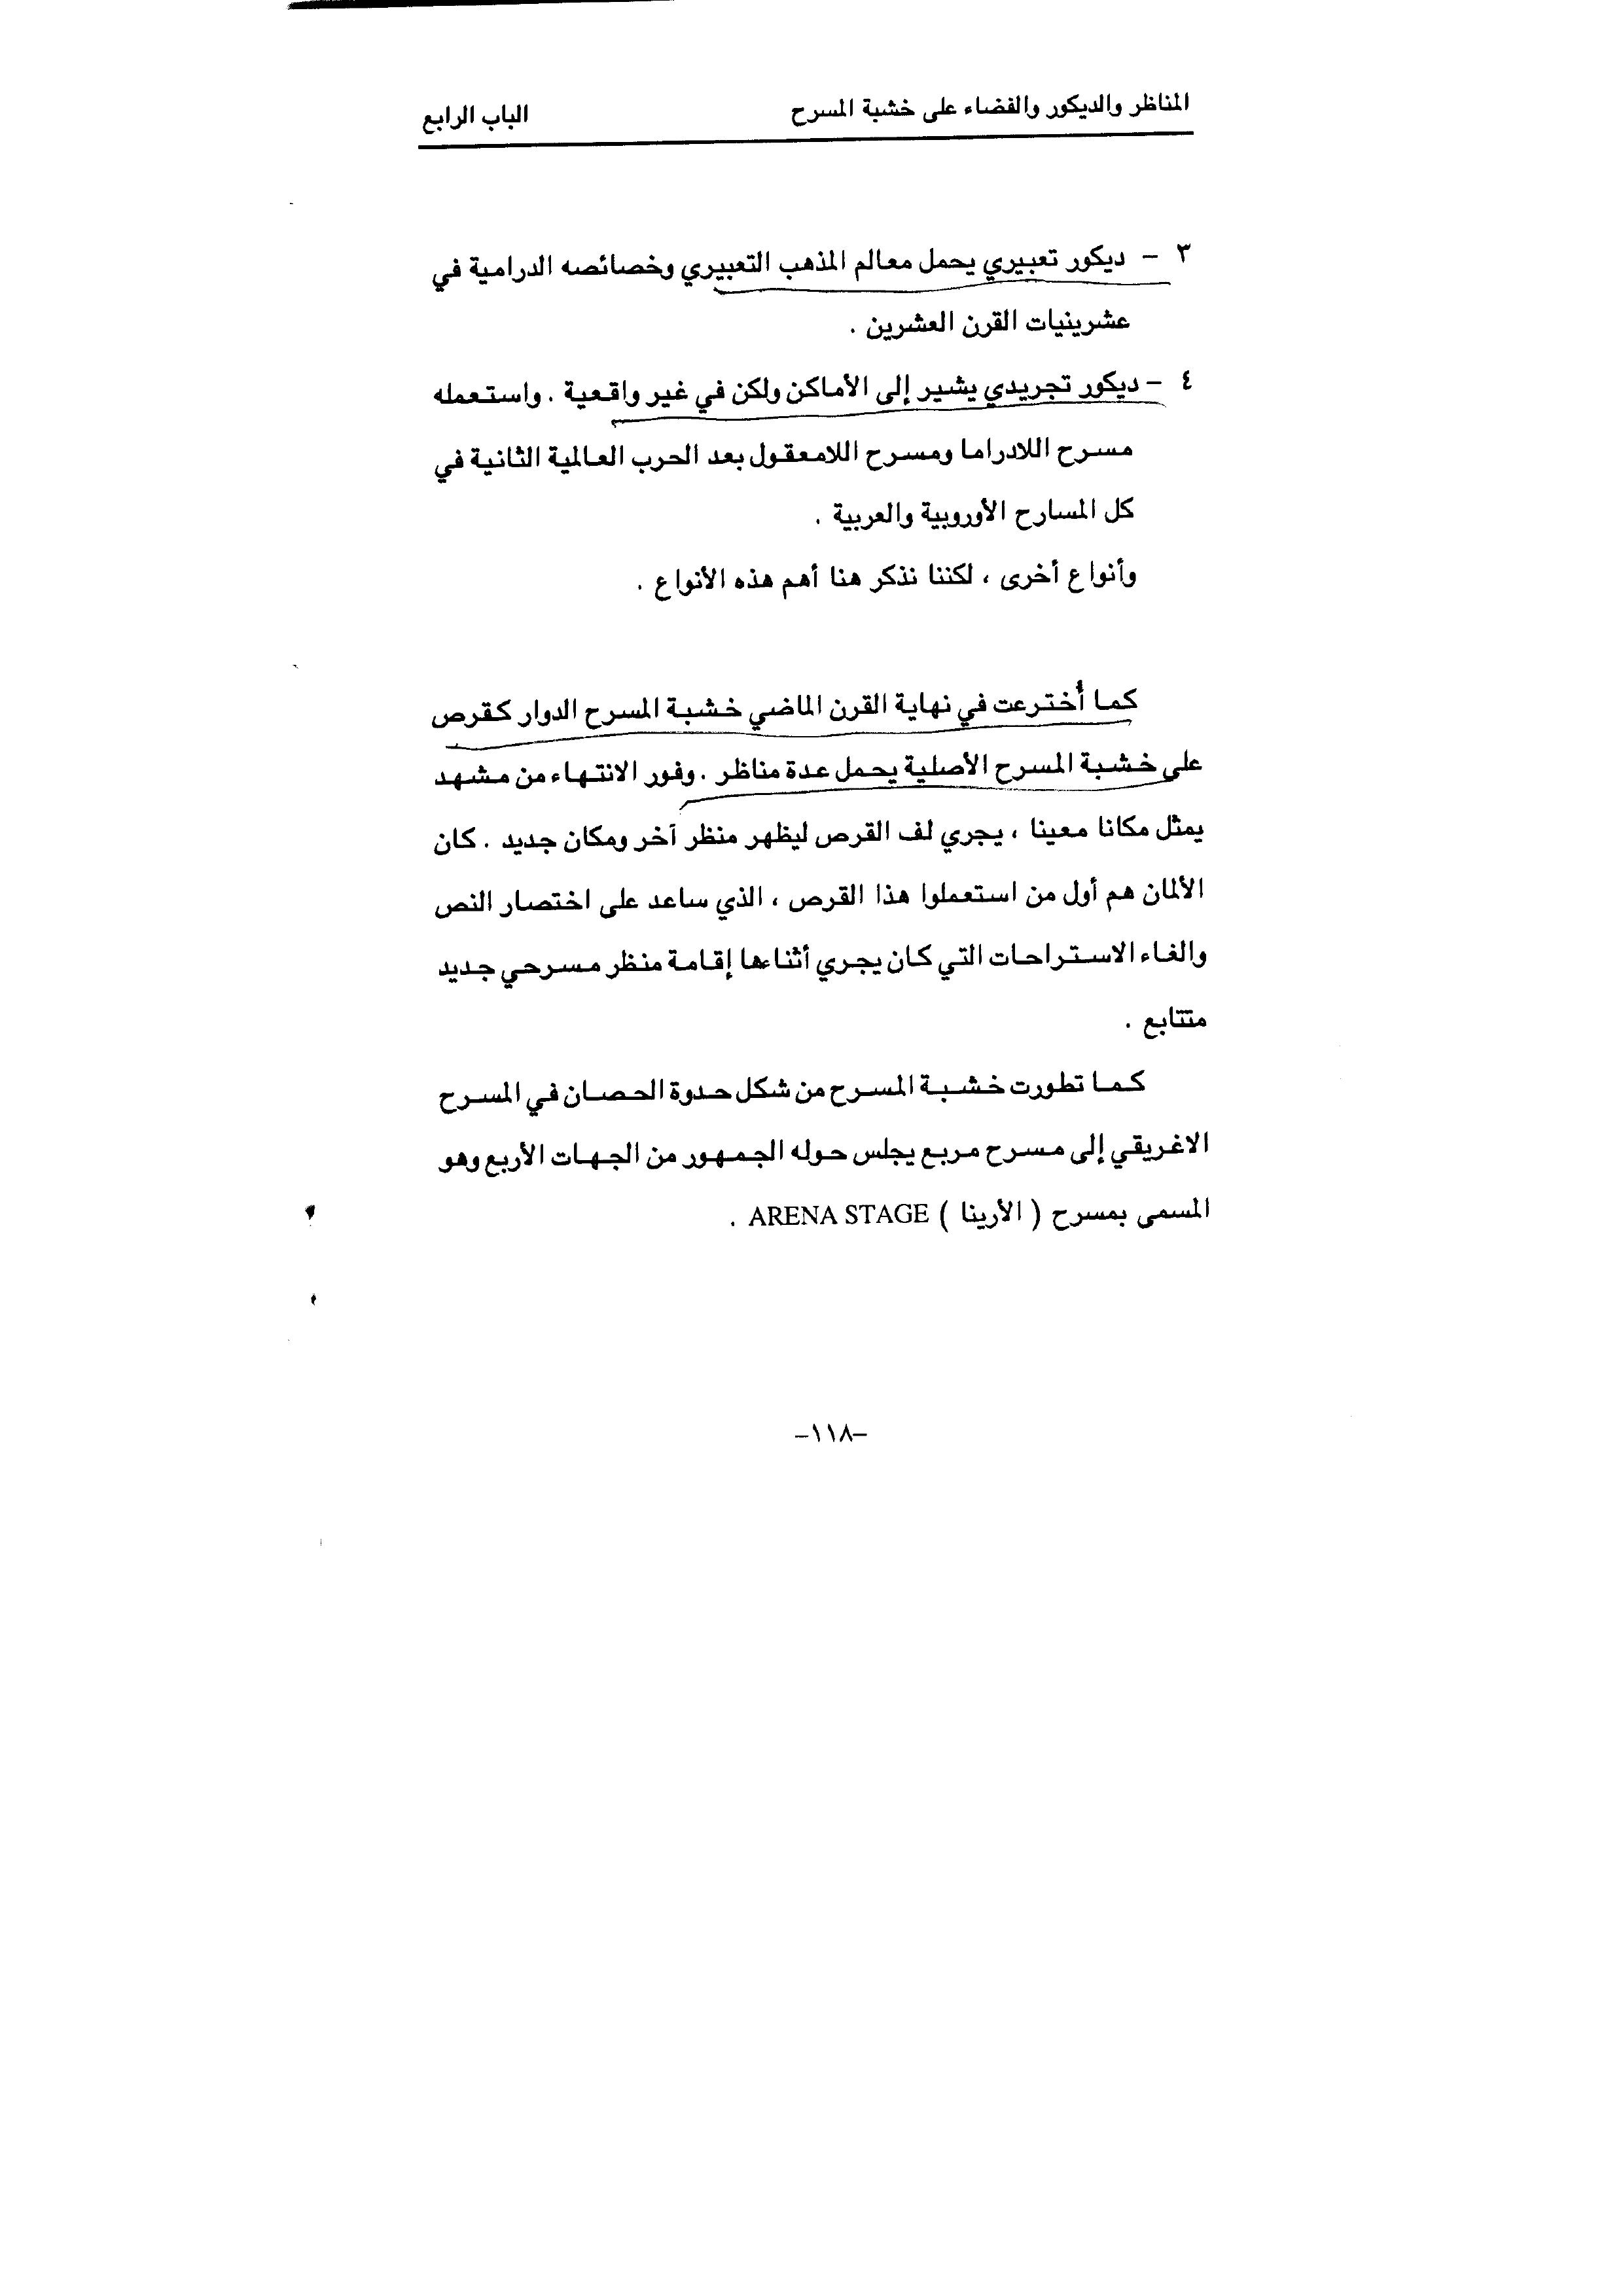 المناظر والديكور والفضاء على خشبة المسرح الباب الرابع
٣ – ديكور تعبيري يحمل معالم المذهب التعبيري وخصائصه الدرامية في
عشرينيات القرن العشرين .
٤ – ديكور تجريدي يشير إلى الأماكن ولكن في غير واقعية . واستعمله
مسرح اللادراما ومسرح اللامعقول بعد الحرب العالمية الثانية في
كل المسارح الأوروبية والعربية .
وأنواع أخرى ، لكننا نذكر هنا أهم هذه الأنواع .
كما أُخترعت في نهاية القرن الماضي خشبة المسرح الدوار كقرص
على خشبة المسرح الأصلية يحمل عدة مناظر . وفور الانتهاء من مشهد
يمثل مكانا معينا ، يجري لف القرص ليظهر منظر آخر ومكان جديد . كان
الألمان هم أول من استعملوا هذا القرص ، الذي ساعد على اختصار النص
والغاء الاستراحات التي كان يجري أثناءها إقامة منظر مسرحي جديد
متتابع .
كما تطورت خشبة المسرح من شكل حدوة الحصان في المسرح
الاغريقي إلى مسرح مربع يجلس حوله الجمهور من الجهات الأربع وهو
المسمى بمسرح ( الأرينا ) ARENA STAGE .
–١١٨–